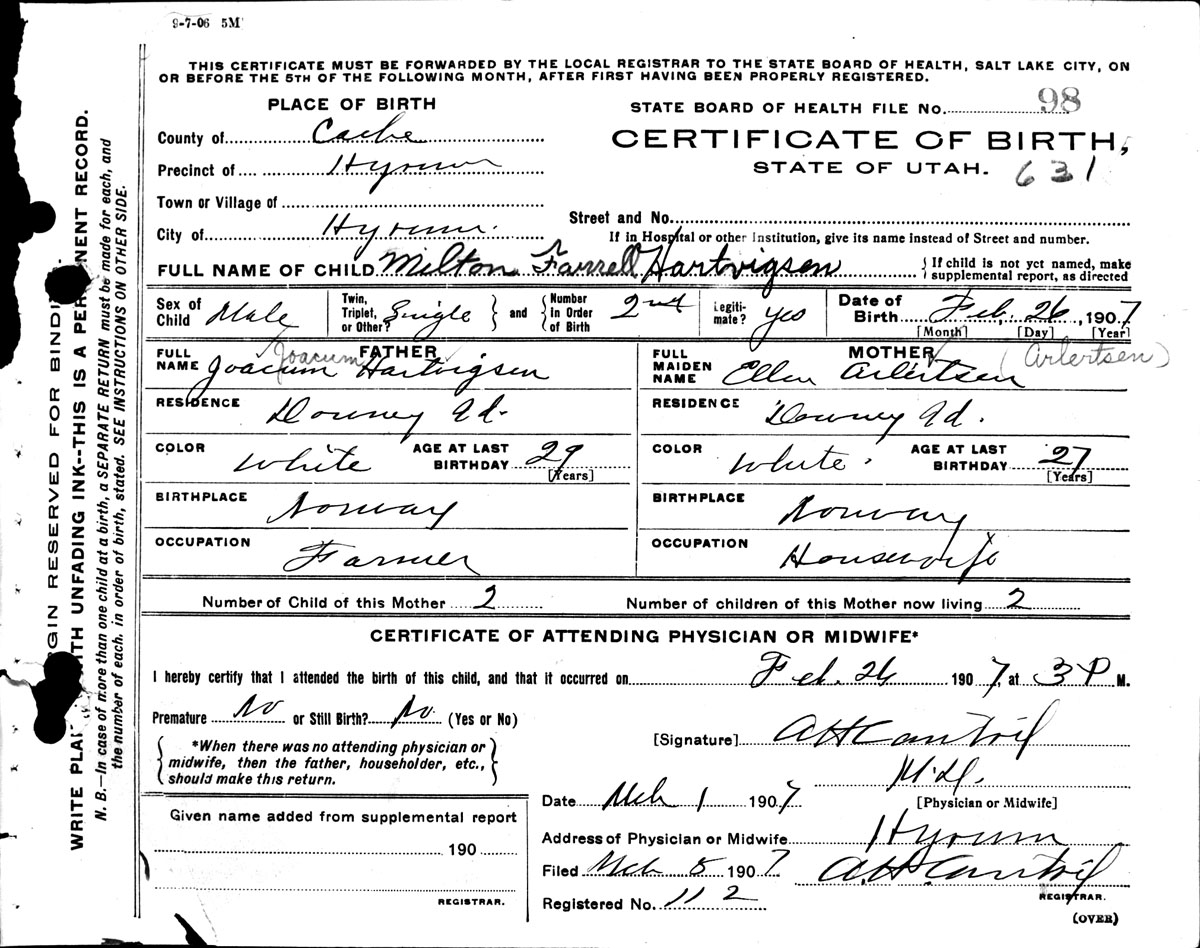 9-7-06 5M
THIS CERTIFICATE MUST BE FORWARDED BY THE LOCAL REGISTRAR TO THE STATE BOARD OF HEALTH, SALT LAKE CITY, ON
OR BEFORE THE 5TH OF THE FOLLOWING MONTH, AFTER FIRST HAVING BEEN PROPERLY REGISTERED.
PLACE OF BIRTH
STATE BOARD OF HEALTH FILE No. 98
County of Cache
CERTIFICATE OF BIRTH,
Precinct of Hyrum
STATE OF UTAH. 631
Town or Village of
Street and No.
City of Hyrum.
If in Hospital or other Institution, give its name instead of Street and number.
FULL NAME OF CHILD Milton Farrell Hartvigsen { If child is not yet named, make
supplemental report, as directed
Sex of Child Male
Twin, Triplet, or Other? Single } and { Number In Order of Birth 2nd
Legiti-mate? yes
Date of Birth Feb. 26, 1907
[Month] [Day] [Year]
FATHER
Joacum
FULL NAME Joacum Hartvigsen
RESIDENCE Downey Id.
COLOR White AGE AT LAST BIRTHDAY 29
[Years]
BIRTHPLACE Norway
OCCUPATION Farmer
MOTHER
(Arlertsen)
FULL MAIDEN NAME Ellen Arlertsen
RESIDENCE Downey Id.
COLOR White. AGE AT LAST BIRTHDAY 27
[Years]
BIRTHPLACE Norway
OCCUPATION Housewife
Number of Child of this Mother 2 Number of children of this Mother now living 2
CERTIFICATE OF ATTENDING PHYSICIAN OR MIDWIFE*
I hereby certify that I attended the birth of this child, and that it occurred on Feb. 26 1907, at 3 P M.
Premature No or Still Birth? No (Yes or No)
{ *When there was no attending physician or
midwife, then the father, householder, etc.,
should make this return. }
[Signature] A H Cantril
M.d.
[Physician or Midwife]
Date Mch 1 1907
Address of Physician or Midwife Hyrum
Filed Mch 5 1907 A.H. Cantril
REGISTRAR.
Registered No. 112
(OVER)
Given name added from supplemental report
190
REGISTRAR.
GIN RESERVED FOR BINDI
WRITE PLAI WITH UNFADING INK--THIS IS A PERMANENT RECORD.
N. B.—In case of more than one child at a birth, a SEPARATE RETURN must be made for each, and
the number of each, in order of birth, stated. SEE INSTRUCTIONS ON OTHER SIDE.